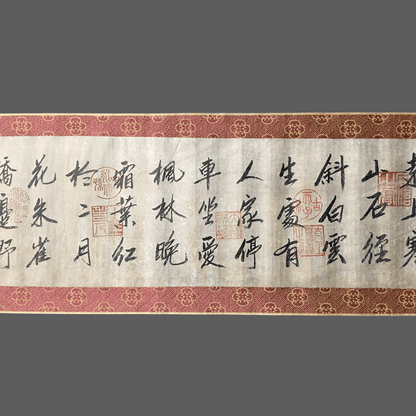 遠上寒
山石徑
斜白雲
生處有
人家停
車坐愛
楓林晚
霜葉紅
於二月
花朱雀
橋邊野